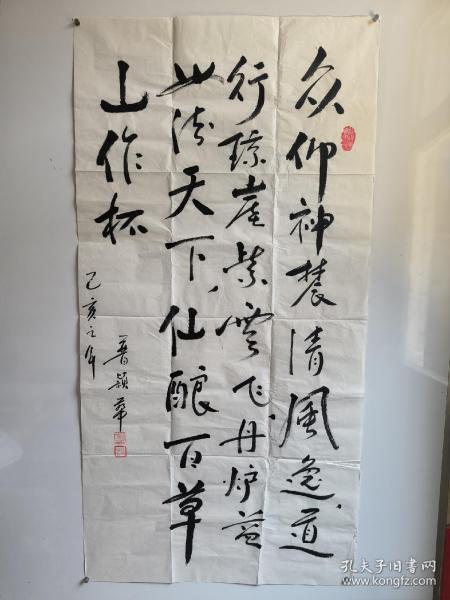 众仰神農清风逸道
行臻崖紫雲飞丹炉益
天下仙酿百草
山作杯
己亥之年
普颖华
孔夫子旧书网
www.kongfz.com